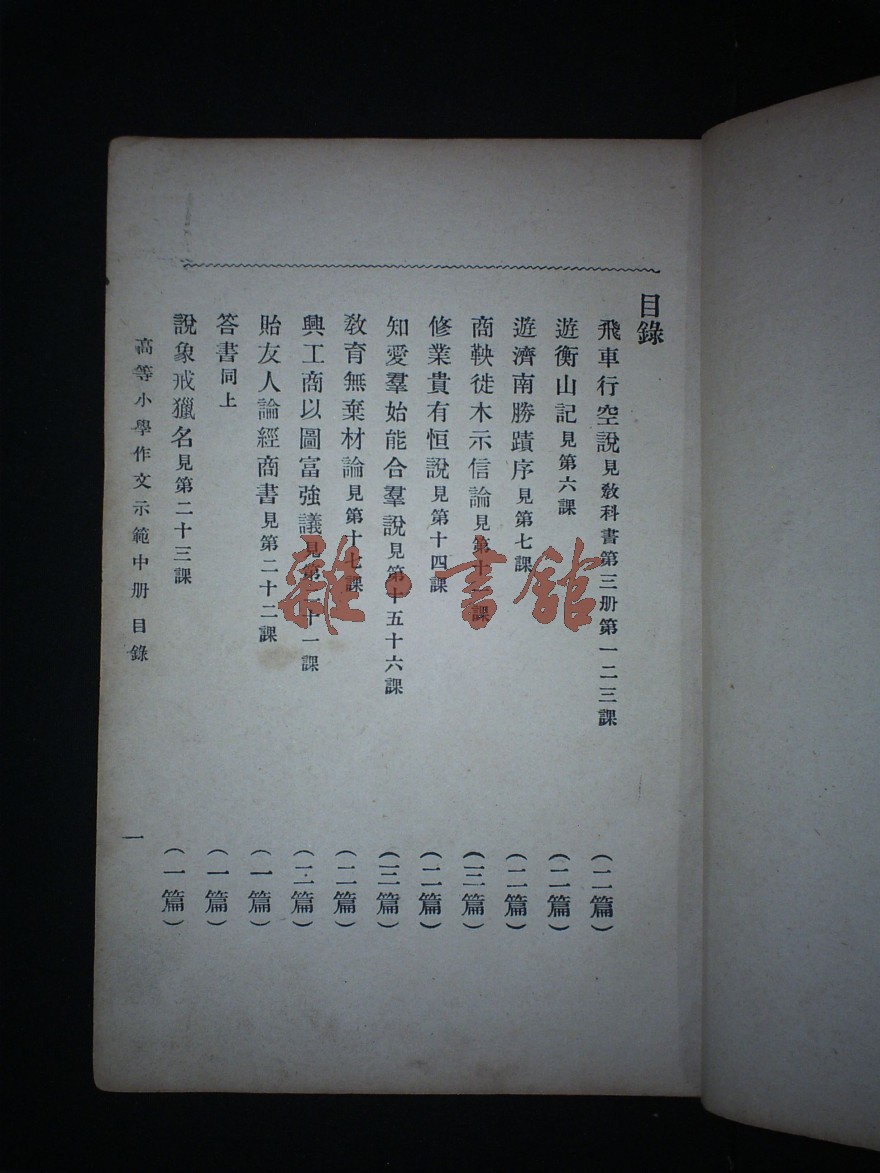 目錄
飛車行空說見教科書第三册第一二三課（二篇）
遊衡山記見第六課（二篇）
遊濟南勝蹟序見第七課（二篇）
商鞅徙木示信論見第十一課（三篇）
修業貴有恒說見第十四課（二篇）
知愛羣始能合羣說見第十五十六課（三篇）
教育無棄材論見第十七課（二篇）
興工商以圖富強議見第二十一課（二篇）
貽友人論經商書見第二十二課（一篇）
答書同上（一篇）
說象戒獵名見第二十三課（一篇）
高等小學作文示範中册 目錄 一
雜·書館